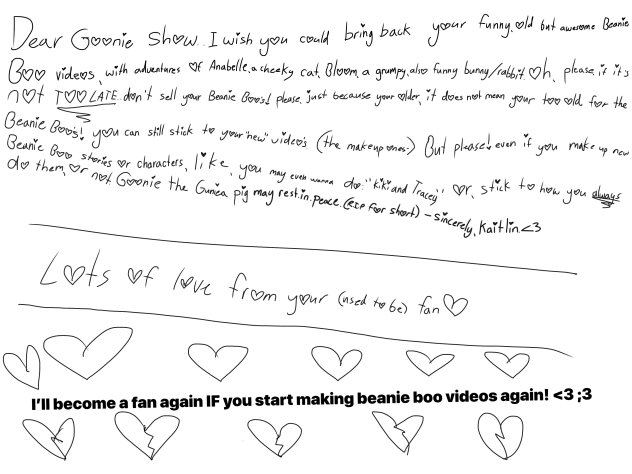 Dear Goonie Show.. I wish you could bring back your funny, old but awesome Beanie
Boo videos, with adventures of Anabelle, a cheeky cat, Bloom, a grumpy, also funny bunny/rabbit. Oh, please, if it's
not TOO LATE.. don't sell your Beanie Boos! please, just because your older, it does not mean your too old for the
Beanie Boos! you can still stick to your "new" videos (the makeup ones.) But please! even if you make up new
Beanie Boo stories or characters, like, you may even wanna do: "Kiki and Tracey" or, stick to how you always
do them, or not. Goonie the Guniea pig may rest.in.peace. (R.I.P for short) - sincerely, Kaitlin. <3
Lots of love from your (used to be) fan
I'll become a fan again IF you start making beanie boo videos again! <3 ;3